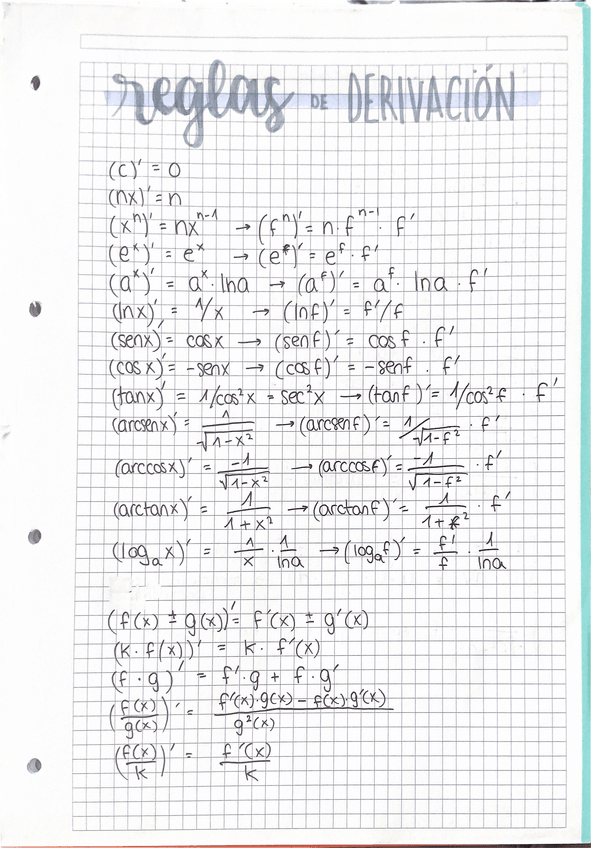 reglas DE DERIVACIÓN
(c)' = 0
(nx)' = n
(xⁿ)' = nxⁿ⁻¹ → (fⁿ)' = n · fⁿ⁻¹ · f'
(eˣ)' = eˣ → (e^f)' = e^f · f'
(aˣ)' = aˣ · lna → (a^f)' = a^f · lna · f'
(lnx)' = 1/x → (lnf)' = f'/f
(senx)' = cosx → (senf)' = cosf · f'
(cosx)' = -senx → (cosf)' = -senf · f'
(tanx)' = 1/cos²x = sec²x → (tanf)' = 1/cos²f · f'
(arcsenx)' = 1/√(1-x²) → (arcsenf)' = 1/√(1-f²) · f'
(arccosx)' = -1/√(1-x²) → (arccosf)' = -1/√(1-f²) · f'
(arctanx)' = 1/(1+x²) → (arctanf)' = 1/(1+f²) · f'
(logₐx)' = 1/x · 1/lna → (logₐf)' = f'/f · 1/lna
(f(x) ± g(x))' = f'(x) ± g'(x)
(k · f(x))' = k · f'(x)
(f · g)' = f' · g + f · g'
(f(x)/g(x))' = (f'(x)·g(x) - f(x)·g'(x))/g²(x)
(f(x)/k)' = f'(x)/k